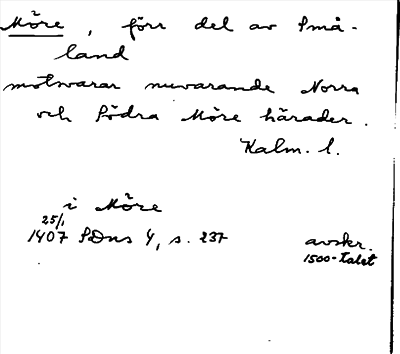 Möre, förr del av Små-
land
motsvarar nuvarande Norra
och Södra Möre härader.
Kalm. l.
i Möre
25/1
1407 SDns 4, s. 237 avskr.
1500-talet